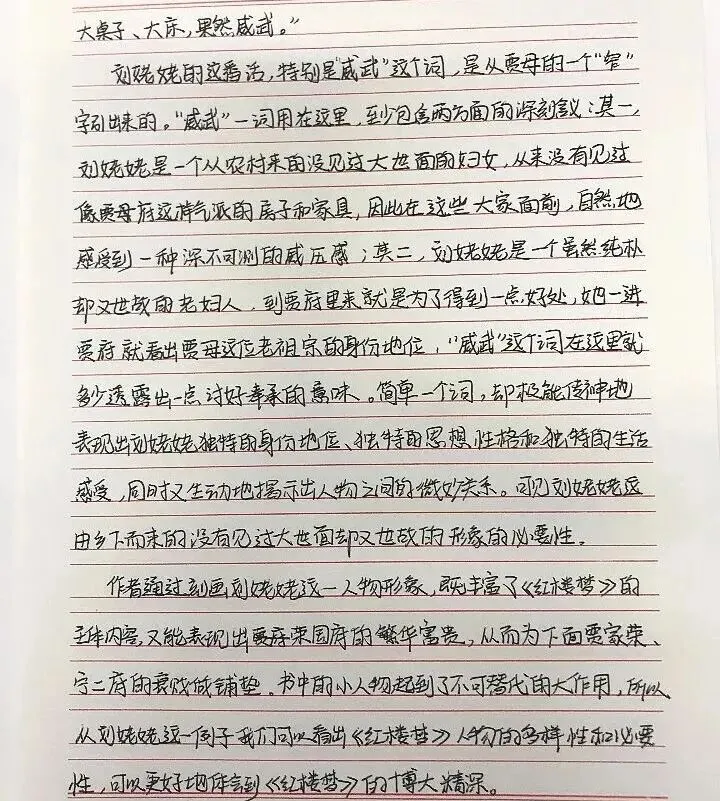 大桌子、大床,果然威武。”
刘姥姥的这番话,特别是“威武”这个词,是从贾母的一个“窄”
字引出来的。“威武”一词用在这里,至少包含两方面的深刻含议:其一,
刘姥姥是一个从农村来的没见过大世面的妇女,从来没有见过
像贾母府这样气派的房子和家具,因此在这些大家面前,自然地
感受到一种深不可测的威压感;其二,刘姥姥是一个虽然纯朴
却又世故的老妇人,到贾府里来就是为了得到一点好处,她一进
贾府就看出贾母这位老祖宗的身份地位,“威武”这个词在这里就
多少透露出一点讨好奉承的意味。简单一个词,却极能传神地
表现出刘姥姥独特的身份地位、独特的思想性格和独特的生活
感受,同时又生动地揭示出人物之间的微妙关系。可见刘姥姥这
由乡下而来的没有见过大世面却又世故的形象的必要性。
作者通过刻画刘姥姥这一人物形象,既丰富了《红楼梦》的
主体内容,又能表现出贾府荣国府的繁华富贵,从而为下面贾家荣、
宁二府的衰败做铺垫。书中的小人物起到了不可替代的大作用,所以
从刘姥姥这一例子我们可以看出《红楼梦》人物的多样性和必要
性,可以更好地体会到《红楼梦》的博大精深。